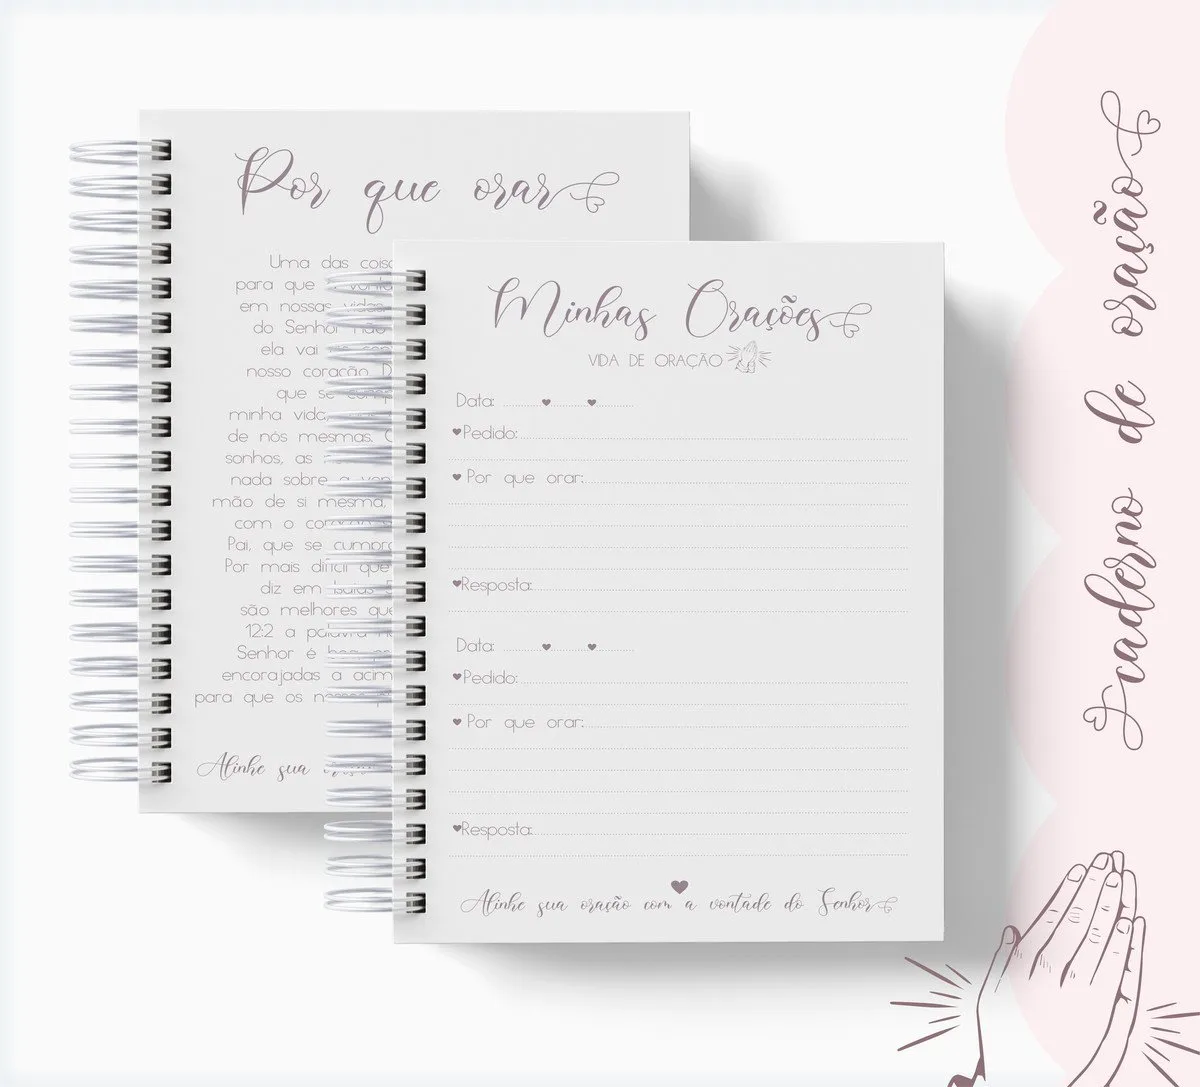 Por que orar
Uma das
para que a
em nossas vidas
do Senhor não
ela vai
nosso coração
que se
minha vida,
de nós mesmas.
sonhos, as
nada sobre a
mão de si mesma,
com o
Pai, que se
Por mais difícil que
diz em Isaías
são melhores que
12:2 a palavra
Senhor é
encorajadas a
para que os
Alinhe sua
Minhas Orações
VIDA DE ORAÇÃO
Data:
Pedido:
Por que orar:
Resposta:
Data:
Pedido:
Por que orar:
Resposta:
Alinhe sua oração com a vontade do Senhor
caderno de oração